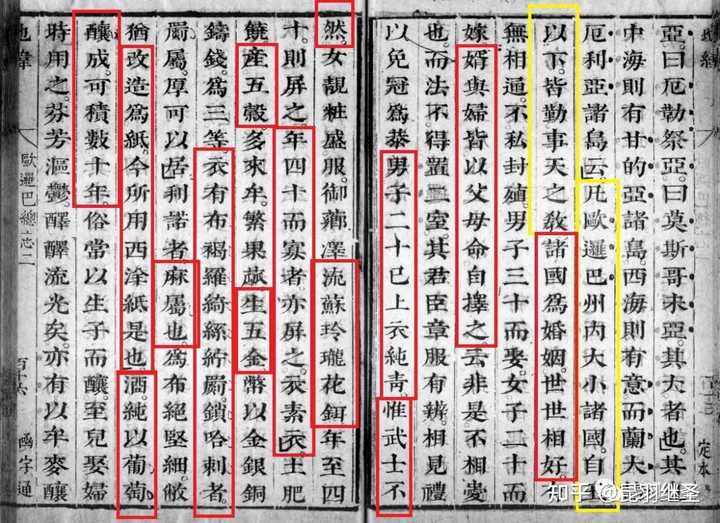 亞。曰厄勒祭亞。曰莫斯哥未亞。其大者也。其
中海則有甘的亞諸島。西海則有意而蘭大
厄利亞諸島云。凡歐邏巴州內大小諸國。自王
以下。皆勤事天之教。諸國爲婚姻。世世相好。有
無相通。不私封殖。男子三十而娶。女子二十而
嫁。婿與婦皆以父母命自擇之。云非是不相愛
也。而法不得置二室。其君臣章服有辨。相見禮
以免冠爲恭。男子二十已上衣純青。惟武士不
定本
然。女靚粧盛服。御薌澤流蘇玲瓏花鈿。年至四
十則屏之。年四十而寡者。亦屏之。衣素衣。土肥
饒。產五穀。多來牟。繁果蓏。生五金。幣以金銀銅
鑄錢。爲三等。衣有布褐羅綺絲紵罽。鎖哈剌者
罽屬。厚可以居。利諾者。麻屬也。爲布絕堅細。敝
猶改造爲紙。今所用西洋紙是也。酒純以葡萄
釀成。可積數十年。俗常以生子而釀。至兒娶婦
時用之。芬芳漚鬱。醳醳流光矣。亦有以牟麥釀
地緯 歐邏巴總志二 百十六 函宇通
知乎 @昆羽继圣